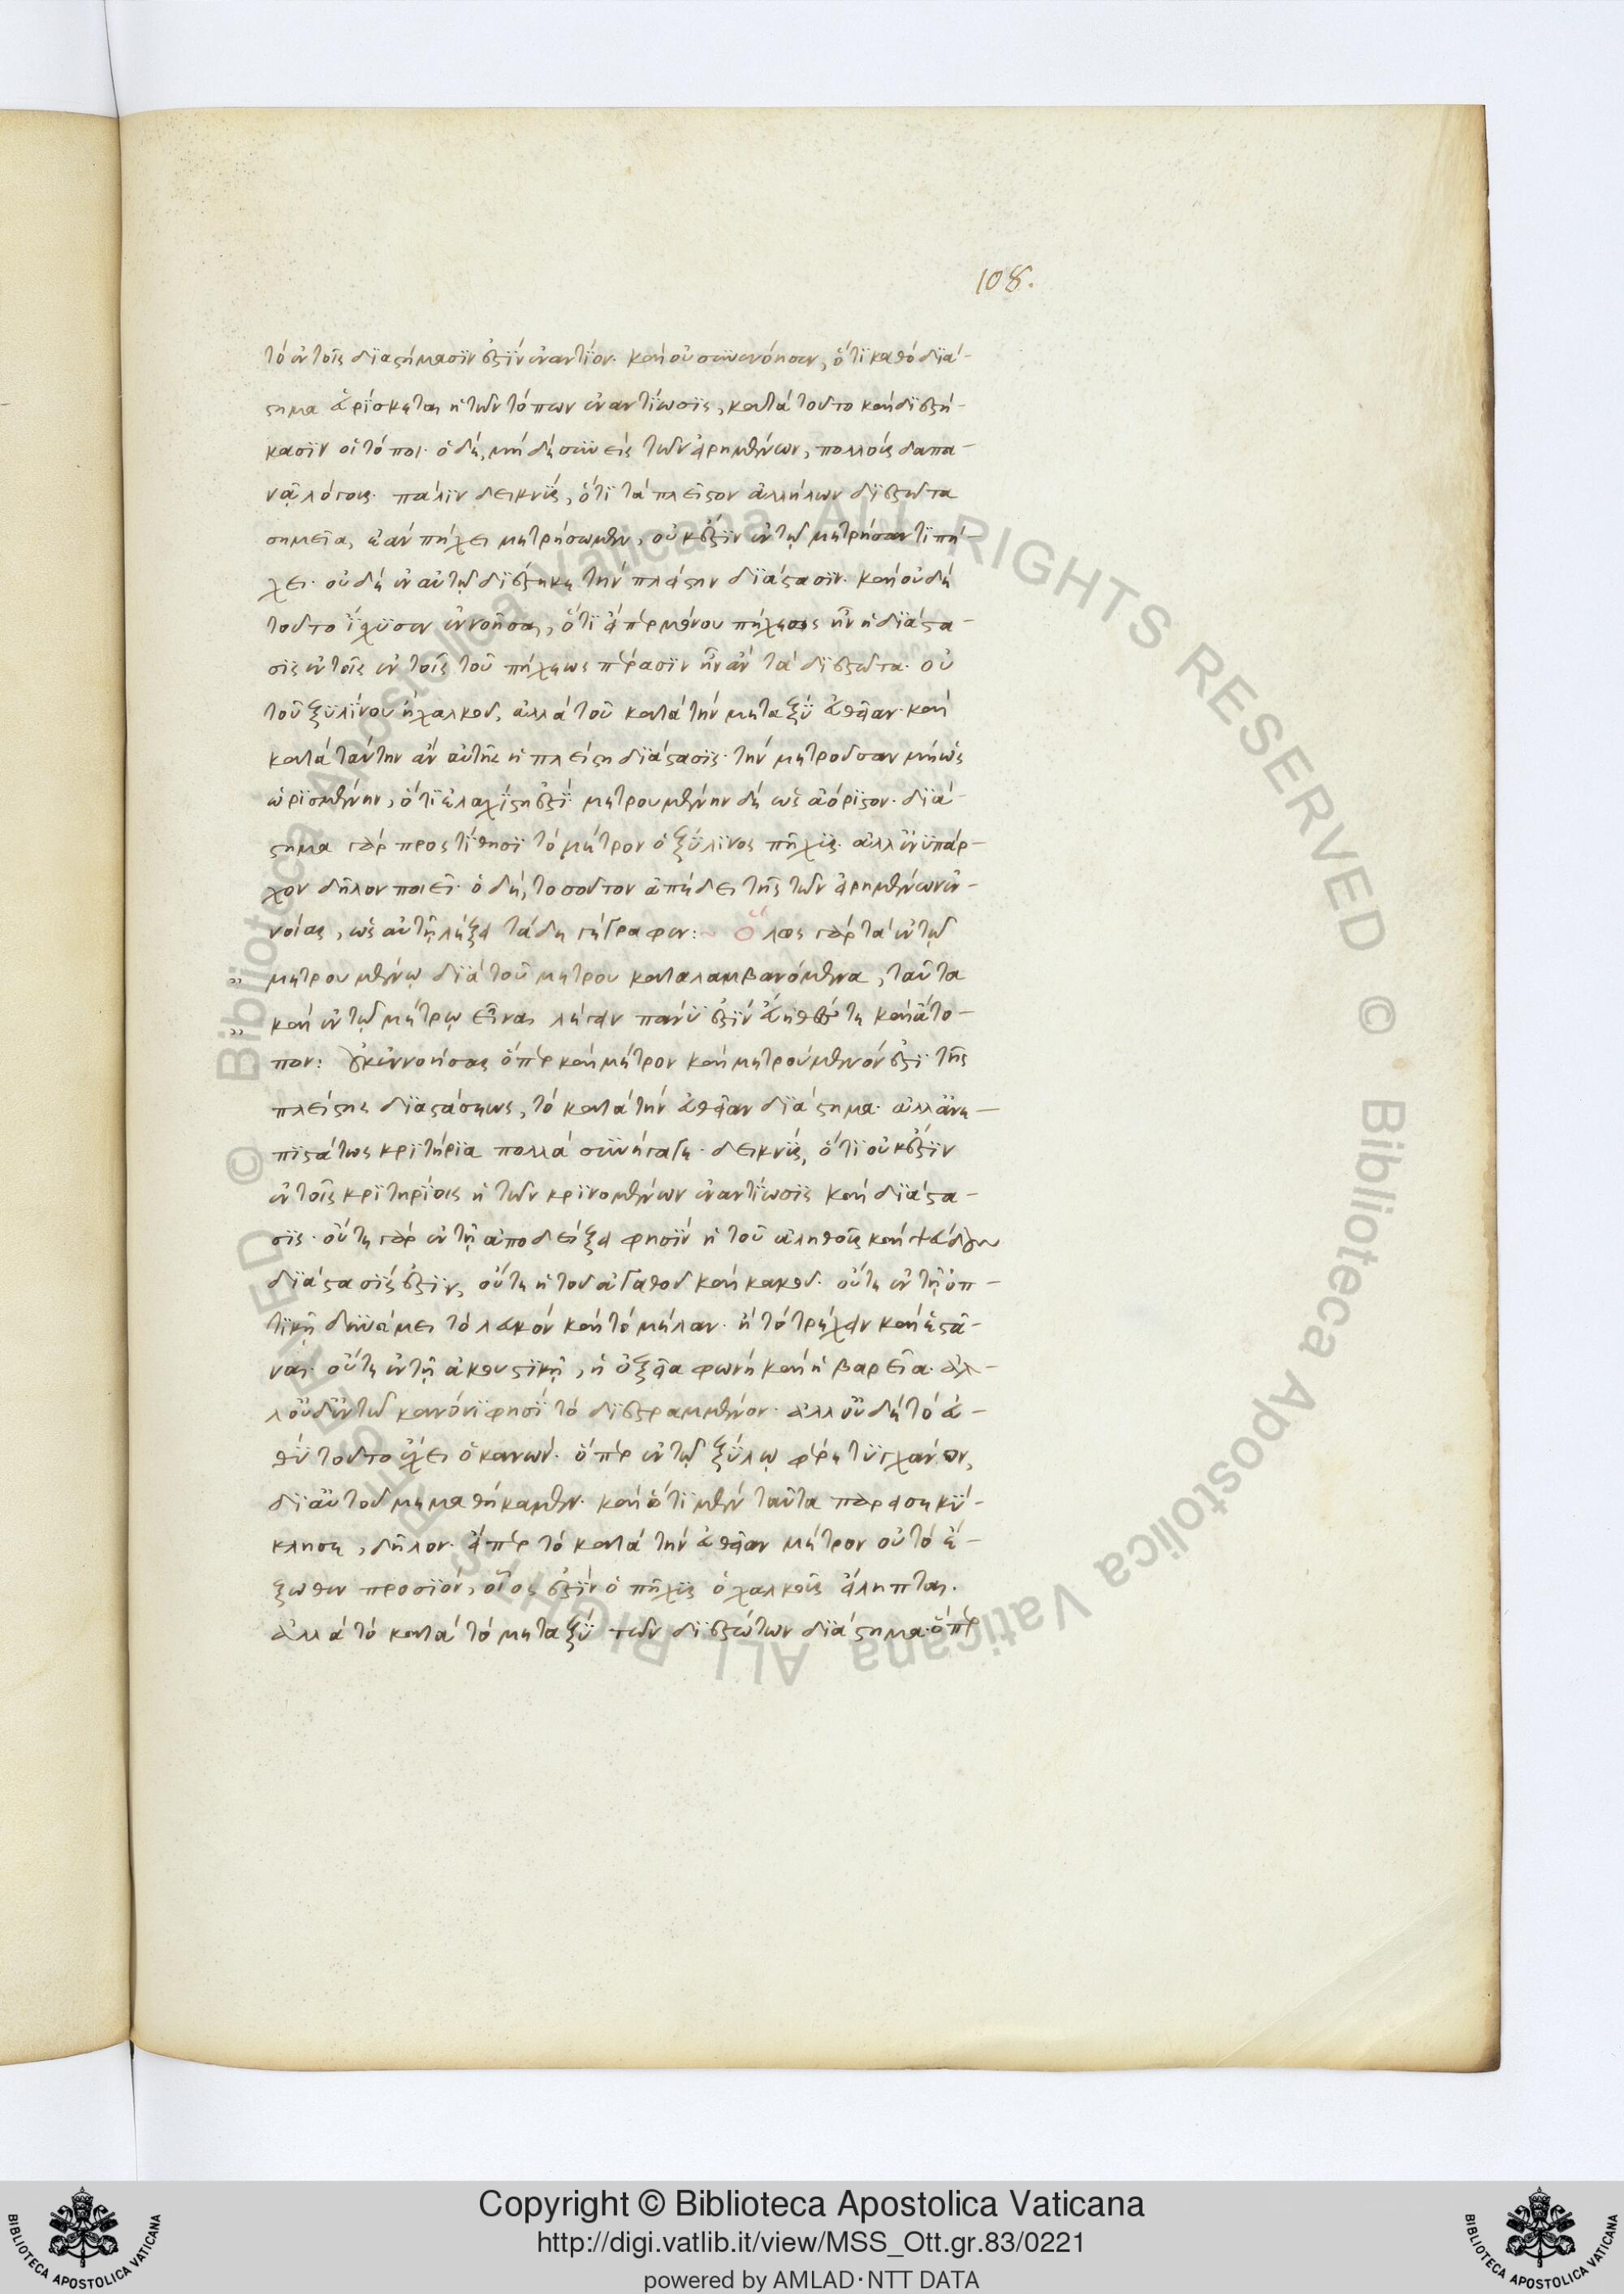 108.
τὸ ἐν τοῖς διαστήμασίν ἐστιν ἐναντίον. καὶ οὐ συνενόησεν, ὅτι καθὸ διά-
στημα εὑρίσκεται ἡ τῶν τόπων ἐναντίωσις, κατὰ τοῦτο καὶ διεστή-
κασιν οἱ τόποι. ὁ δὲ, μὴ δὲ συνεὶς τῶν εἰρημένων, πολλοὺς δαπα-
νᾷ λόγους. πάλιν δεικνὺς, ὅτι τὰ πλεῖστον ἀλλήλων διεστῶτα
σημεῖα, ἐὰν πήχει μετρήσωμεν, οὐκ ἔστιν ἐν τῷ μετρήσαντι πή-
χει. οὐδὲ ἐν αὐτῷ διέστηκε τὴν πλείστην διάστασιν. καὶ οὐδὲ
τοῦτο ἴσχυσεν ἐννοῆσαι, ὅτι εἴπερ μόνου πήχεως ἦν ἡ διάστα-
σις ἐν τοῖς ἐν τοῖς τοῦ πήχεως πέρασιν ἦν ἂν τὰ διεστῶτα. οὐ
τοῦ ξυλίνου ἢ χαλκοῦ, ἀλλὰ τοῦ κατὰ τὴν μεταξὺ εὐθεῖαν. καὶ
κατὰ ταύτην ἂν αὐτῆς ἡ πλείστη διάστασις. τὴν μετροῦσαν μὴ ὡς
ὡρισμένην, ὅτι ἐλαχίστη ἐστί. μετρουμένην δὲ ὡς ἀόριστον. διά-
στημα γὰρ προστίθησι τὸ μέτρον ὁ ξύλινος πῆχυς. ἀλλ' ἐνυπάρ-
χον δῆλον ποιεῖ. ὁ δὲ, τοσοῦτον ἀπῄδει τῆς τῶν εἰρημένων ἐν-
νοίας, ὡς αὐτῇ λέξει τάδε γέγραφεν:~ Ὅλως γὰρ τὰ ἐν τῷ
" μετρουμένῳ διὰ τοῦ μετρου καταλαμβανόμενα, ταῦτα
" καὶ ἐν τῷ μέτρῳ εἶναι λέγειν πάνυ ἐστὶν εὔηθές τε καὶ ἄτο-
πον: οὐκ ἐννοήσας ὅπερ καὶ μέτρον καὶ μετρούμενόν ἐστι τῆς
πλείστης διαστάσεως, τὸ κατὰ τὴν εὐθεῖαν διάστημα. ἀλλ' ἀνε-
πιστάτως κριτήρια πολλὰ συνήγαγε. δεικνὺς, ὅτι οὐκ ἔστιν
ἐν τοῖς κριτηρίοις ἡ τῶν κρινομένων ἐναντίωσις καὶ διάστα-
σις. οὔτε γὰρ ἐν τῇ ἀποδείξει φησὶν ἡ τοῦ ἀληθοῦς καὶ ψεύδους
διάστασίς ἐστιν, οὔτε ἡ τοῦ ἀγαθοῦ καὶ κακοῦ. οὔτε ἐν τῇ ὀπ-
τικῇ δυνάμει τὸ λευκὸν καὶ τὸ μέλαν. ἢ τὸ τρέχειν καὶ ἑστά-
ναι. οὔτε ἐν τῇ ἀκουστικῇ, ἡ ὀξεῖα φωνὴ καὶ ἡ βαρεῖα. ἀλ-
λ' οὐδ' ἐν τῷ κανόνι φησὶ τὸ διεστραμμένον. ἀλλ' οὐδὲ τὸ εὐ-
θὺ τοῦτο ἔχει ὁ κανὼν. ὅπερ ἐν τῷ ξύλῳ φέρε τυγχάνον,
δι' αὐτοῦ μεμαθήκαμεν. καὶ ὅτι μὲν ταῦτα
κλησε, δῆλον. εἴπερ τὸ κατὰ τὴν εὐθεῖαν μέτρον οὐ τὸ ἔ-
ξωθεν προσιὸν, οἷός ἐστιν ὁ πῆχυς ὁ χαλκοῦς εἴληπται.
ἀλλὰ τὸ κατὰ τὸ μεταξὺ τῶν διεστώτων διάστημα. ὅπερ
Copyright © Biblioteca Apostolica Vaticana
http://digi.vatlib.it/view/MSS_Ott.gr.83/0221
powered by AMLAD·NTT DATA